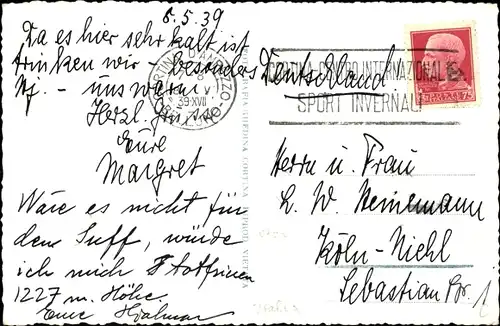 6.5.39
Da es hier sehr kalt ist
trinken wir – besonders
Hj. – uns warm.
Herzl. Grüsse
Eure
Margret
Wäre es nicht für
den Suff, würde
ich mich
1227 m. Höhe.
Euer Hjalmar
CORTINA D'AMPEZZO
39·XVII
CORTINA CENTRO INTERNAZIONALE
SPORT INVERNALI
Deutschland
Herrn u. Frau
L. W. Heinemann
Köln-Niehl
Sebastian Str. 1